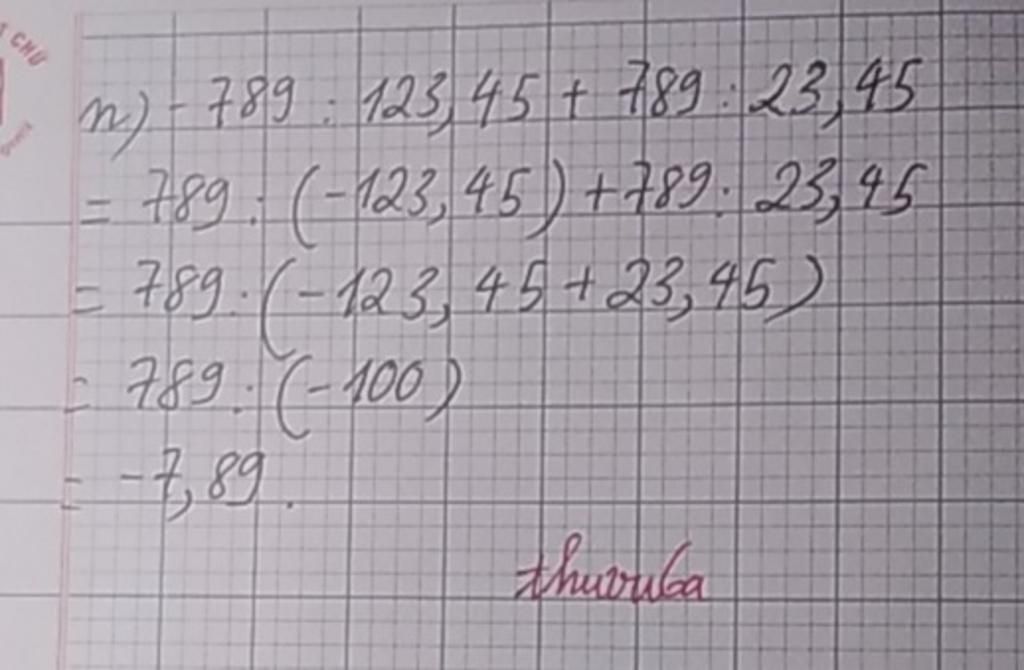 T CHÚ
n) - 789 : 123,45 + 789 : 23,45
= 789 : (-123,45) + 789 : 23,45
= 789 : (-123,45 + 23,45)
= 789 : (-100)
= -7,89.
thuvuba